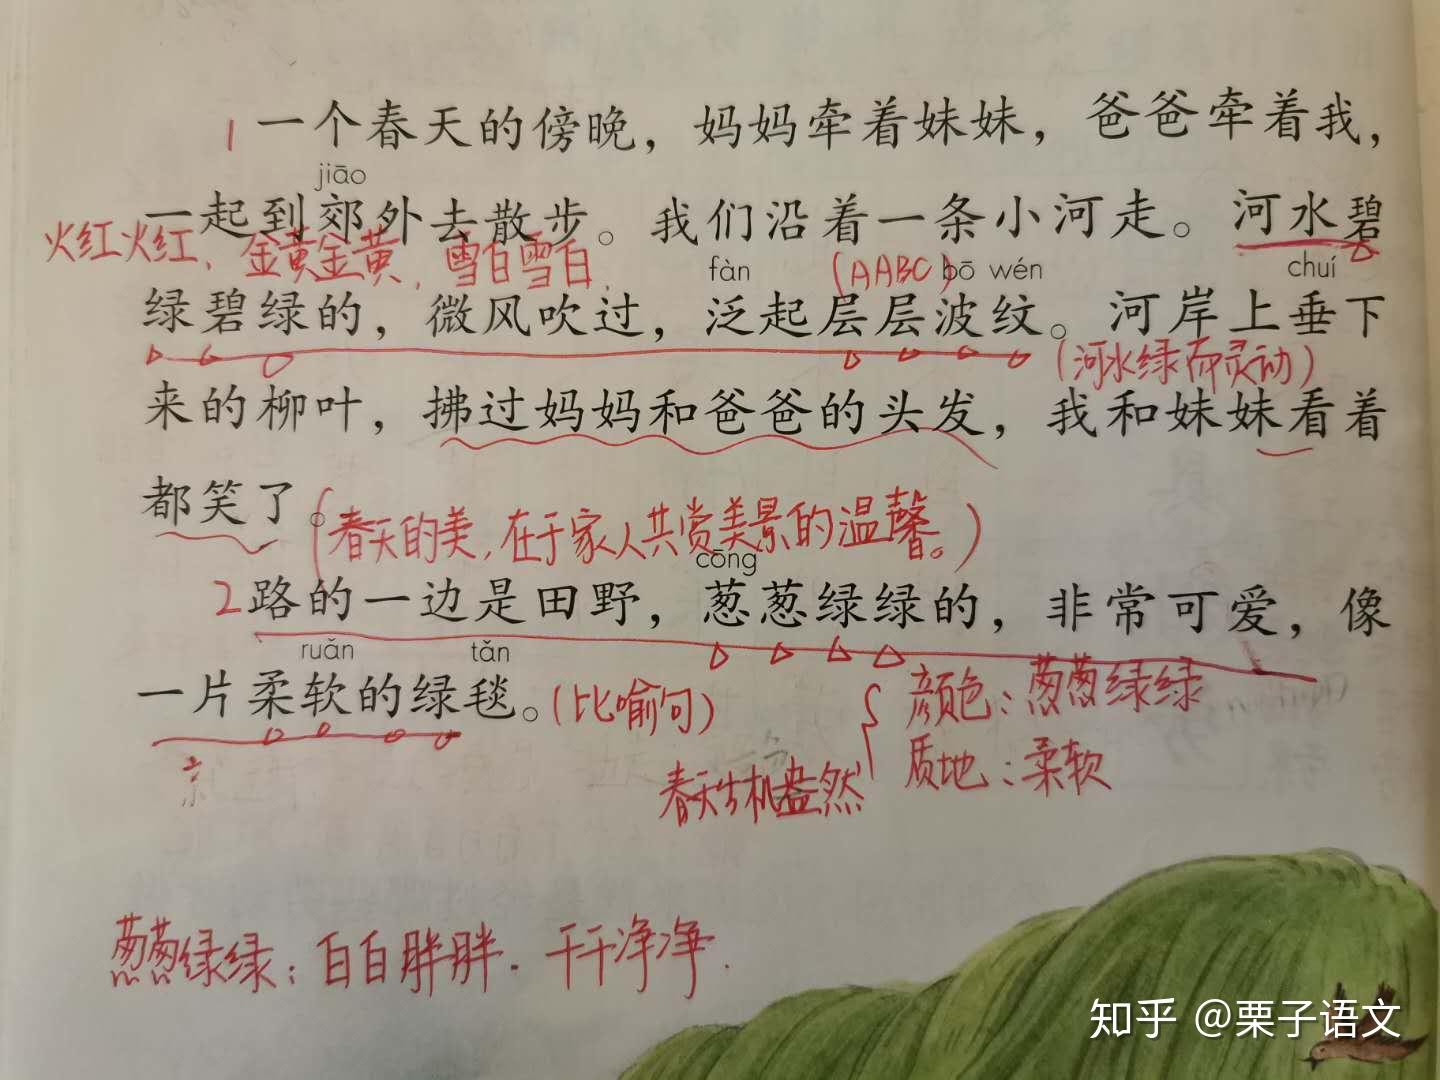 1 一个春天的傍晚，妈妈牵着妹妹，爸爸牵着我，
jiāo
一起到郊外去散步。我们沿着一条小河走。河水碧
火红火红、金黄金黄，雪白雪白，
fàn (AABC) bō wén chuí
绿碧绿的，微风吹过，泛起层层波纹。河岸上垂下
(河水绿而灵动)
来的柳叶，拂过妈妈和爸爸的头发，我和妹妹看着
都笑了。
(春天的美，在于家人共赏美景的温馨。)
cōng
2 路的一边是田野，葱葱绿绿的，非常可爱，像
ruǎn tǎn
一片柔软的绿毯。(比喻句)
颜色：葱葱绿绿
质地：柔软
春天生机盎然
葱葱绿绿：白白胖胖．干干净净．
知乎 @栗子语文